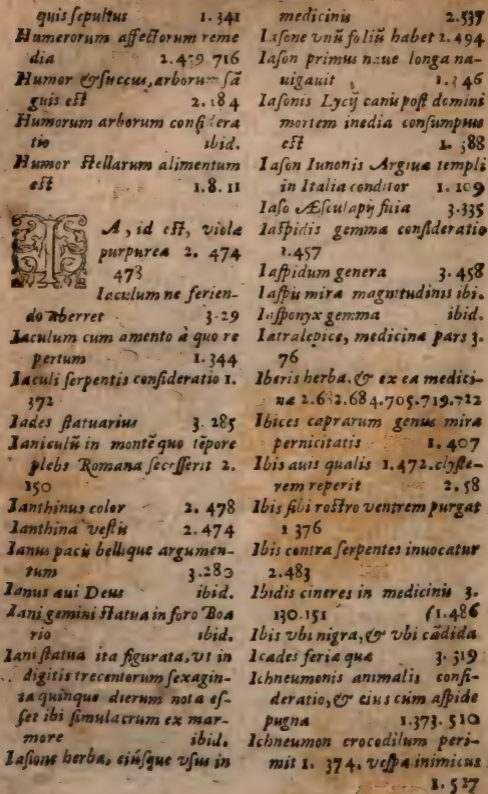 quis sepultus 1. 341
Humerorum affectorum reme
dia 2.479 716
Humor & succus, arborum sã
guis est 2.184
Humorum arborum considera
tio ibid.
Humor stellarum alimentum
est 1.8.11
IA, id est, viola
purpurea 2. 474
473
Iaculum ne ferien-
do aberret 3.29
Iaculum cum amento à quo re
pertum 1.344
Iaculi serpentis consideratio 1.
372
Iades statuarius 3. 285
Ianiculũ in montẽ quo tẽpore
plebs Romana secesserit 2.
150
Ianthinus color 2. 478
Ianthina vestis 2.474
Ianus pacis bellique argumen-
tum 3.280
Ianus aui Deus ibid.
Iani gemini statua in foro Boa
rio ibid.
Iani statua ita figurata, vt in
digitis trecentorum sexagin-
ta quinque dierum nota es-
set ibi simulacrum ex mar-
more ibid.
Iasione herba, eiúsque vsus in
medicinis 2.537
Iasione vnũ foliũ habet 2. 494
Iason primus naue longa na-
uigauit 1.346
Iasonis Lycij canis post domini
mortem inedia consumptus
est 1. 388
Iason Iunonis Argiuæ templi
in Italia conditor 1. 109
Iaso Æsculapij filia 3.335
Iaspidis gemma consideratio
1.457
Iaspidum genera 3.458
Iaspis mira magnitudinis ibi.
Iasponyx gemma ibid.
Iatralepice, medicina pars 3.
76
Iberis herba, & ex ea medici-
na 2.682.684.705.719.722
Ibices caprarum genus mira
pernicitatis 1. 407
Ibis auis qualis 1.472. clyste-
rem reperit 2.58
Ibis sibi rostro ventrem purgat
1 376
Ibis contra serpentes inuocatur
2.483
Ibidis cineres in medicinis 3.
130.151 (1.486
Ibis vbi nigra, & vbi cãdida
Icades feria qua 3. 319
Ichneumonis animalis consi-
deratio, & eius cùm aspide
pugna 1.373. 510
Ichneumon crocodilum peri-
mit 1. 374. vespa inimicus
1. 527